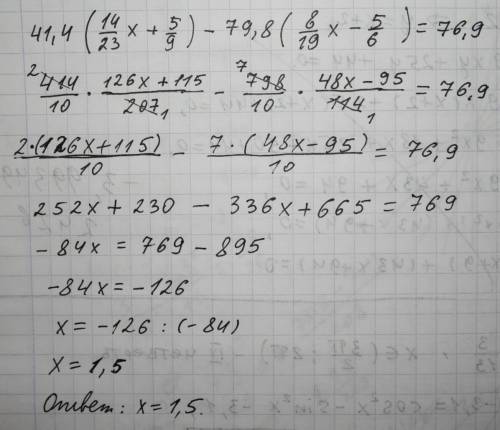 41,4 (14/23 x + 5/9) - 79,8 (8/19 x - 5/6) = 76,9
2 414/10 · 126x + 115/207 1 - 7 798/10 · 48x - 95/114 1 = 76,9
2·(126x + 115)/10 - 7·(48x - 95)/10 = 76,9
252x + 230 - 336x + 665 = 769
-84x = 769 - 895
-84x = -126
x = -126 : (-84)
x = 1,5
Ответ: x = 1,5.